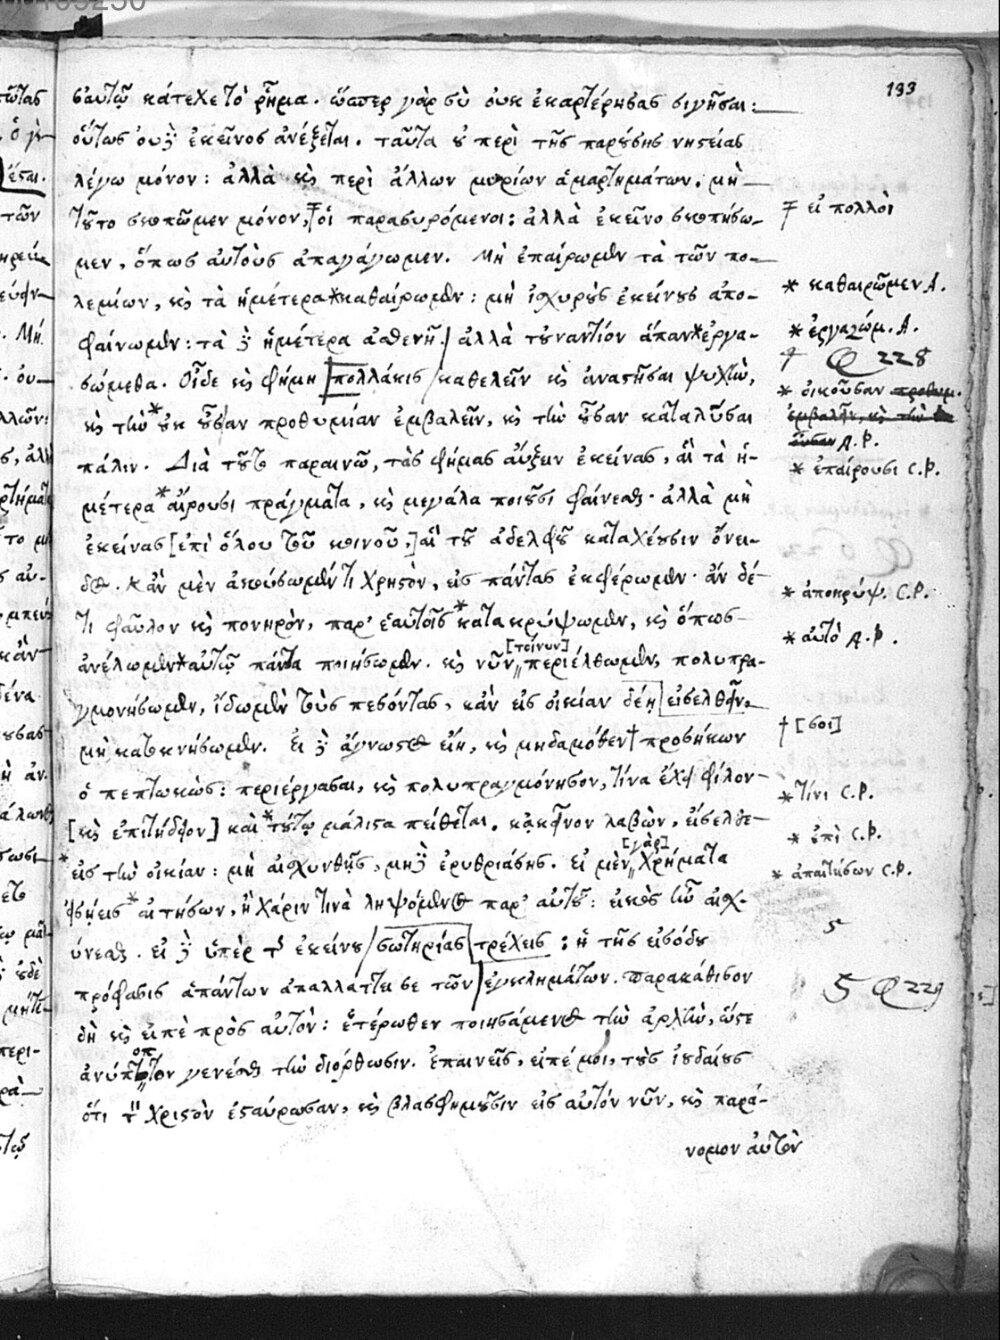 133
σαυτῷ κάτεχε τὸ ῥῆμα. ὥσπερ γὰρ σὺ οὐκ ἐκαρτέρησας σιγῆσαι:
οὕτως οὐδὲ ἐκεῖνος ἀνέξεται. ταῦτα οὐ περὶ τῆς παρούσης νηστείας
λέγω μόνον: ἀλλὰ καὶ περὶ ἄλλων μυρίων ἁμαρτημάτων. μὴ
τοῦτο σκοπῶμεν μόνον, οἱ παρασυρόμενοι: ἀλλὰ ἐκεῖνο σκοπήσω-
εἰ πολλοὶ
μεν, ὅπως αὐτοὺς ἀπαγάγωμεν. Μὴ ἐπαίρωμεν τὰ τῶν πο-
λεμίων, καὶ τὰ ἡμέτερα * καθαίρωμεν: μὴ ἰσχυροὺς ἐκείνους ἀπο-
* καθαιρῶμεν A.
φαίνωμεν: τὰ δὲ ἡμέτερα ἀσθενῆ / ἀλλὰ τοὐναντίον ἅπαν * ἐργα-
* ἐργαζώμ. A.
σώμεθα. Οἶδε καὶ φήμη [πολλάκις / καθελεῖν καὶ ἀναστῆσαι ψυχὴν,
228
καὶ τὴν * οὐκ οὖσαν προθυμίαν ἐμβαλεῖν, καὶ τὴν οὖσαν καταλῦσαι
* οἰκοῦσαν
A.P.
πάλιν. Διὰ τοῦτο παραινῶ, τὰς φήμας αὔξειν ἐκείνας, αἳ τὰ ἡ-
* ἐπαίρουσι C.P.
μέτερα * αἴρουσι πράγματα, καὶ μεγάλα ποιοῦσι φαίνεσθαι. ἀλλὰ μὴ
ἐκείνας [ἐπὶ ὅλου τοῦ κοινοῦ,] αἳ τοῦ ἀδελφοῦ καταχέουσιν ὄνει-
δος. κἂν μὲν ἀκούσωμέν τι χρηστὸν, εἰς πάντας ἐκφέρωμεν. ἂν δέ
τι φαῦλον καὶ πονηρὸν, παρ' ἑαυτοῖς * κατακρύψωμεν, καὶ ὅπως
* ἀποκρύψ. C.P.
ἀνέλωμεν * αὐτῷ πάντα ποιήσωμεν. καὶ νῦν [τοίνυν] περιέλθωμεν, πολυπρα-
* αὐτὸ A.P.
γμονήσωμεν, ἴδωμεν τοὺς πεσόντας, κἂν εἰς οἰκίαν δέῃ εἰσελθεῖν,
μὴ κατοκνήσωμεν. Εἰ δὲ ἄγνωστος εἴη, καὶ μηδαμόθεν † προσήκων
† [σοι]
ὁ πεπτωκὼς: περιέργασαι, καὶ πολυπραγμόνησον, τίνα ἔχει φίλον
[καὶ ἐπιτήδειον] καὶ * τούτῳ μάλιστα πείθεται. κἀκεῖνον λαβὼν, εἴσελθε
* τίνι C.P.
* εἰς τὴν οἰκίαν: μὴ αἰσχυνθῇς, μηδὲ ἐρυθριάσῃς. Εἰ μὲν [γὰρ] χρήματα
* ἐπὶ C.P.
ᾔσεις * αἰτήσων, ἢ χάριν τινὰ ληψόμενος παρ' αὐτοῦ: εἰκὸς ἦν αἰσχ-
* ἀπαιτήσων C.P.
ύνεσθαι. εἰ δὲ ὑπὲρ τῆς ἐκείνου / σωτηρίας τρέχεις: ἡ τῆς εἰσόδου
5
πρόφασις ἁπάντων ἀπαλλάττει σε τῶν ἐγκλημάτων. Παρακάθισον
5 229
δὴ καὶ εἰπὲ πρὸς αὐτὸν: ἑτέρωθεν ποιησάμενος τὴν ἀρχὴν, ὥστε
ἀνύποπτον γενέσθαι τὴν διόρθωσιν. Ἐπαινεῖς, εἰπέ μοι, τοὺς ἰουδαίους
ὅτι τὸν Χριστὸν ἐσταύρωσαν, καὶ βλασφημοῦσιν εἰς αὐτὸν νῦν, καὶ παρά-
νομον αὐτὸν